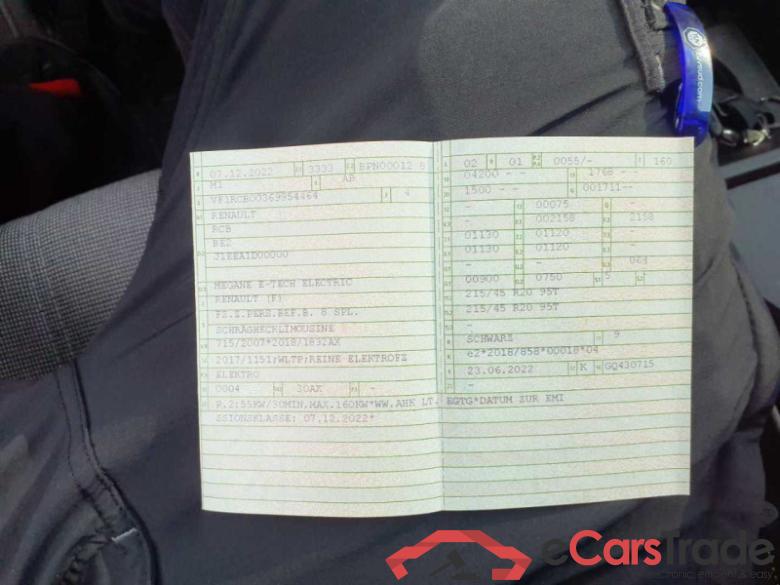 07.12.2022 3333 BPN00012 8
M1 AB
VF1RCB00369954464 4
RENAULT
RCB
BE2
J1EEA1D00000
MEGANE E-TECH ELECTRIC
RENAULT (F)
FZ.Z.PERS.BEF.B. 8 SPL.
SCHRÄGHECKLIMOUSINE
715/2007*2018/1832AX
2017/1151;WLTP;REINE ELEKTROFZ
ELEKTRO
0004 30AX -
P.2:55KW/30MIN,MAX.160KW*WW.AHK LT. EGTG*DATUM ZUR EMI
SSIONSKLASSE: 07.12.2022*
02 01 0055/- 160
04200 - - 1768 - -
1500 - - 001711--
- 00075 -
- 002158 2158
01130 01120 -
01130 01120 -
-
00900 0750 5 -
215/45 R20 95T
215/45 R20 95T
-
SCHWARZ 9
e2*2018/858*00018*04
23.06.2022 K GQ430715
-
eCarsTrade